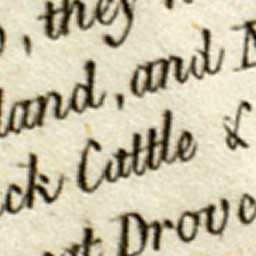 , they
land, and
ck Cattle &
t Drove